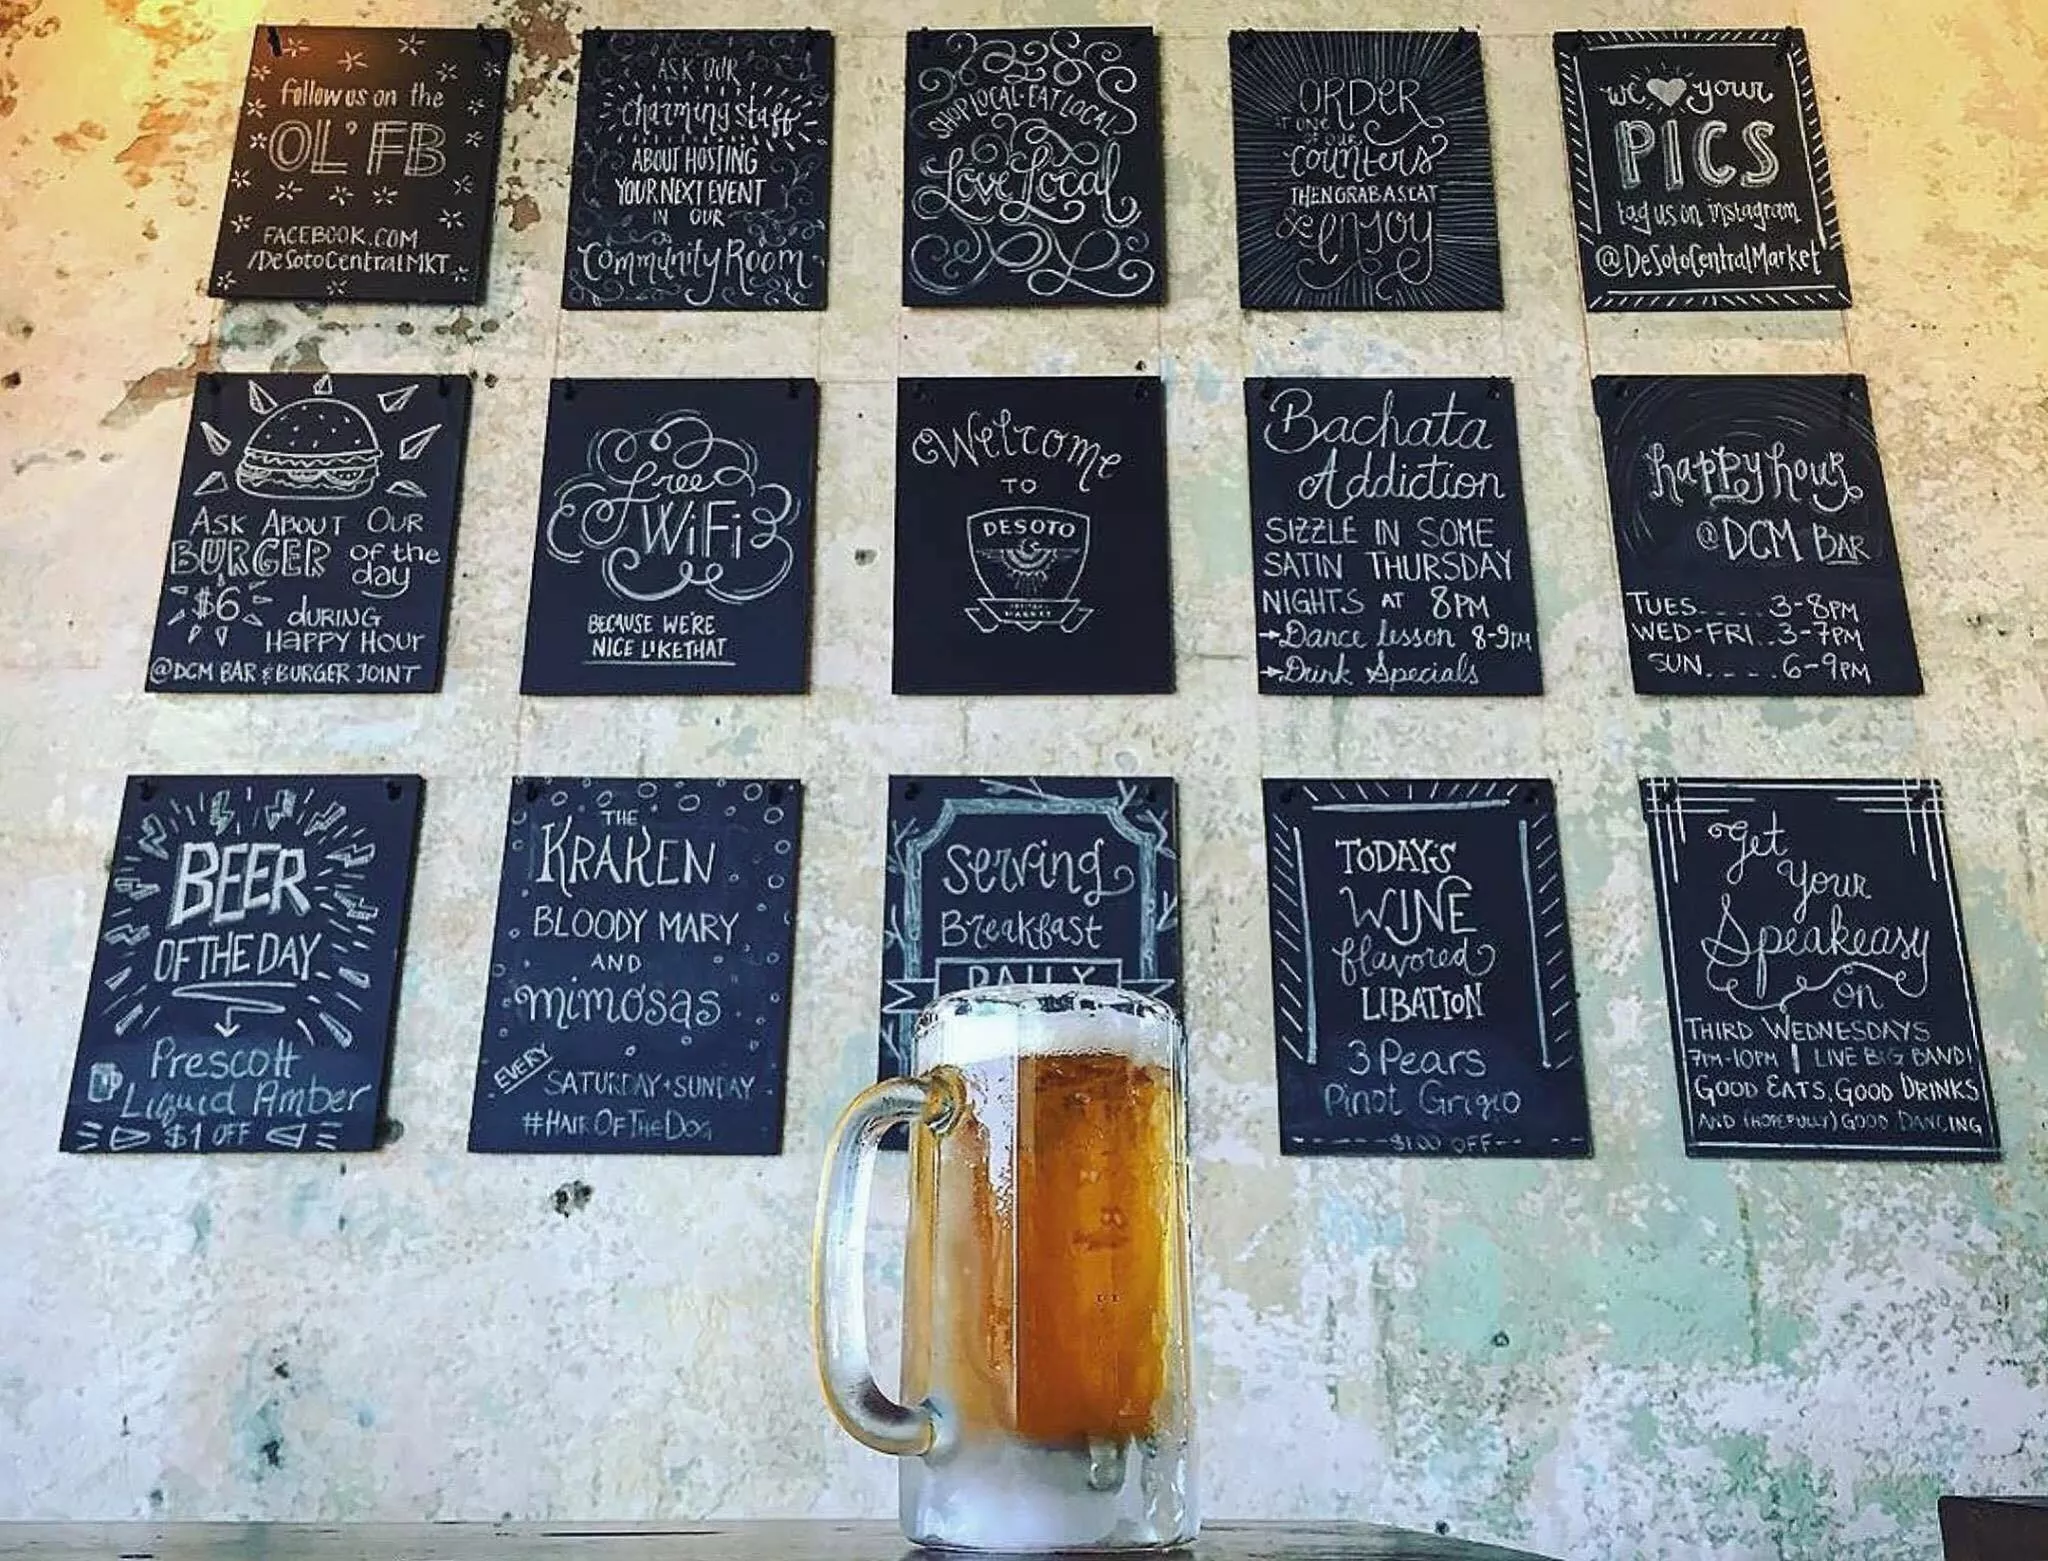 follow us on the
OL' FB
FACEBOOK.COM
/DeSotoCentralMKT
ASK OUR
charming staff
ABOUT HOSTING
YOUR NEXT EVENT
IN OUR
Community Room
SHOP LOCAL - EAT LOCAL
Love Local
ORDER
AT ONE
OF OUR
counters
THEN GRAB A SEAT
& enjoy
we ♥ your
PICS
tag us on instagram
@DeSotoCentralMarket
ASK ABOUT OUR
BURGER of the
day
$6 dURING
HAPPY HOUR
@DCM BAR & BURGER JOINT
Free
WiFi
BECAUSE WE'RE
NICE LIKE THAT
Welcome
TO
DESOTO
CENTRAL
MARKET
Bachata
Addiction
SIZZLE IN SOME
SATIN THURSDAY
NIGHTS AT 8PM
→Dance lesson 8-9PM
→Drink Specials
happy hour
@DCM BAR
TUES..... 3-8PM
WED-FRI..3-7PM
SUN..... 6-9PM
BEER
OF THE DAY
Prescott
Liquid Amber
$1 OFF
THE
KRAKEN
BLOODY MARY
AND
mimosas
EVERY
SATURDAY + SUNDAY
#HAIROFTHEDOG
Serving
Breakfast
DAILY
TODAY'S
WINE
flavored
LIBATION
3 Pears
Pinot Grigio
$1.00 OFF
Get
Your
Speakeasy
on
THIRD WEDNESDAYS
7PM-10PM | LIVE BIG BAND!
GOOD EATS, GOOD DRINKS
AND (HOPEFULLY) GOOD DANCING